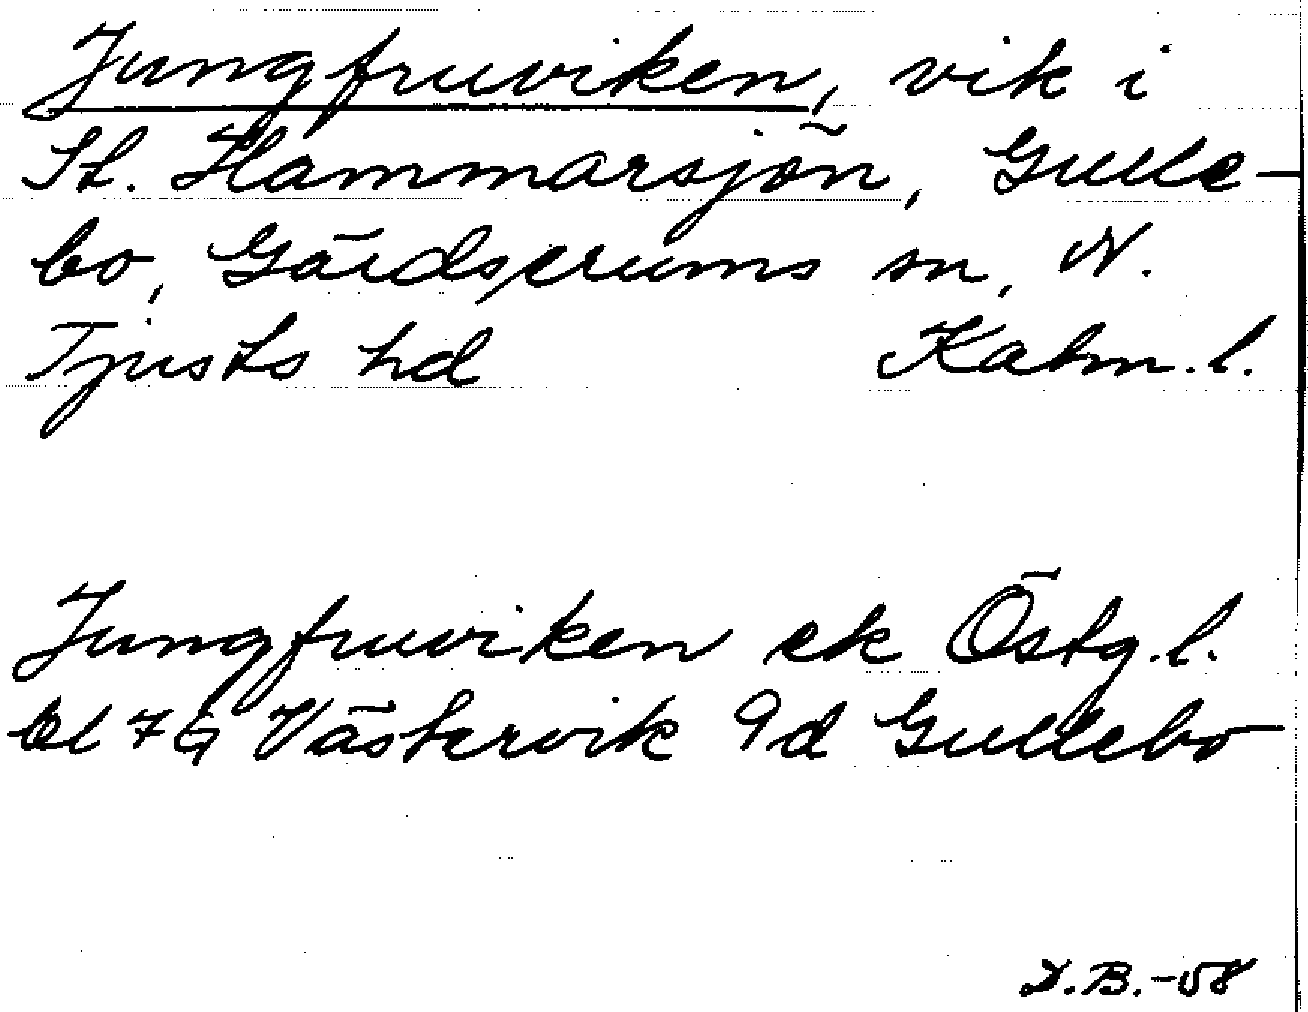 Jungfruviken, vik i
St. Hammarsjön, Gulle-
bo, Gärdserums sn, N.
Tjusts hd Kalm. l.
Jungfruviken ek Östg. l.
bl 76 Västervik 9d Gullebo
D.B.-58